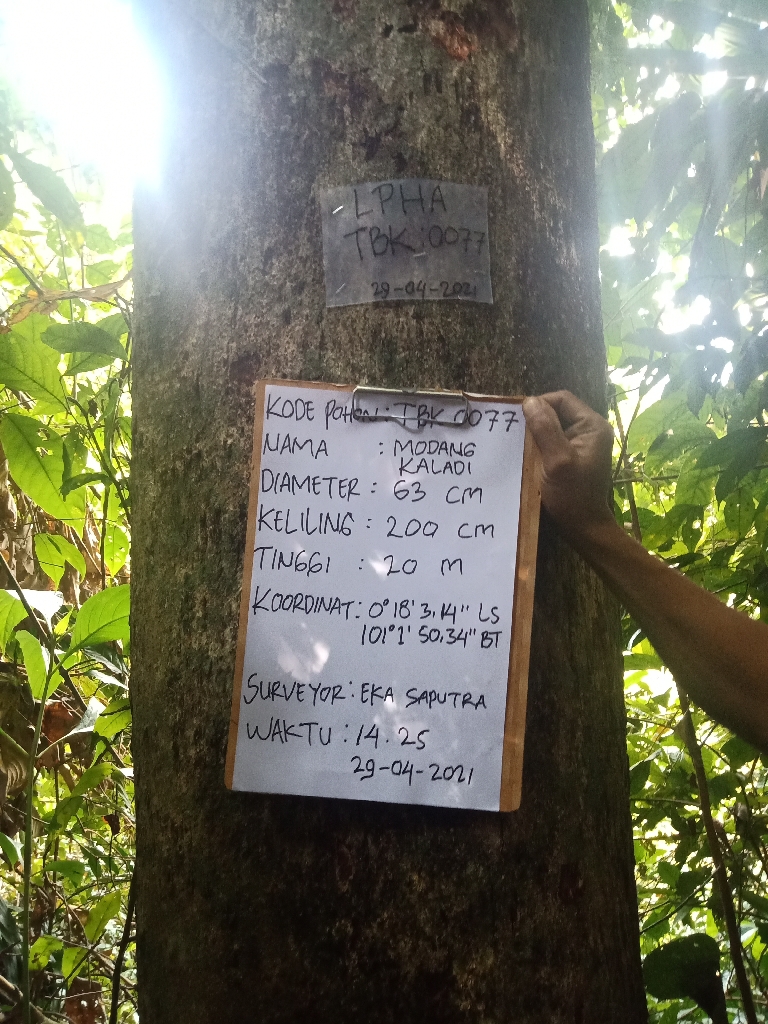 LPHA
TBK:0077
29-04-2021
KODE POHON: TBK 0077
NAMA : MODANG
KALADI
DIAMETER : 63 CM
KELILING : 200 CM
TINGGI : 20 M
KOORDINAT: 0°18'3,14" LS
101°1'50,34" BT
SURVEYOR: EKA SAPUTRA
WAKTU : 14.25
29-04-2021